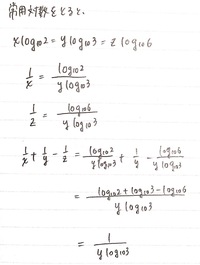 常用対数をとると、
x log₁₀2 = y log₁₀3 = z log₁₀6
1/x = log₁₀2 / y log₁₀3
1/z = log₁₀6 / y log₁₀3
1/x + 1/y - 1/z = log₁₀2 / y log₁₀3 + 1/y - log₁₀6 / y log₁₀3
= log₁₀2 + log₁₀3 - log₁₀6 / y log₁₀3
= 1 / y log₁₀3